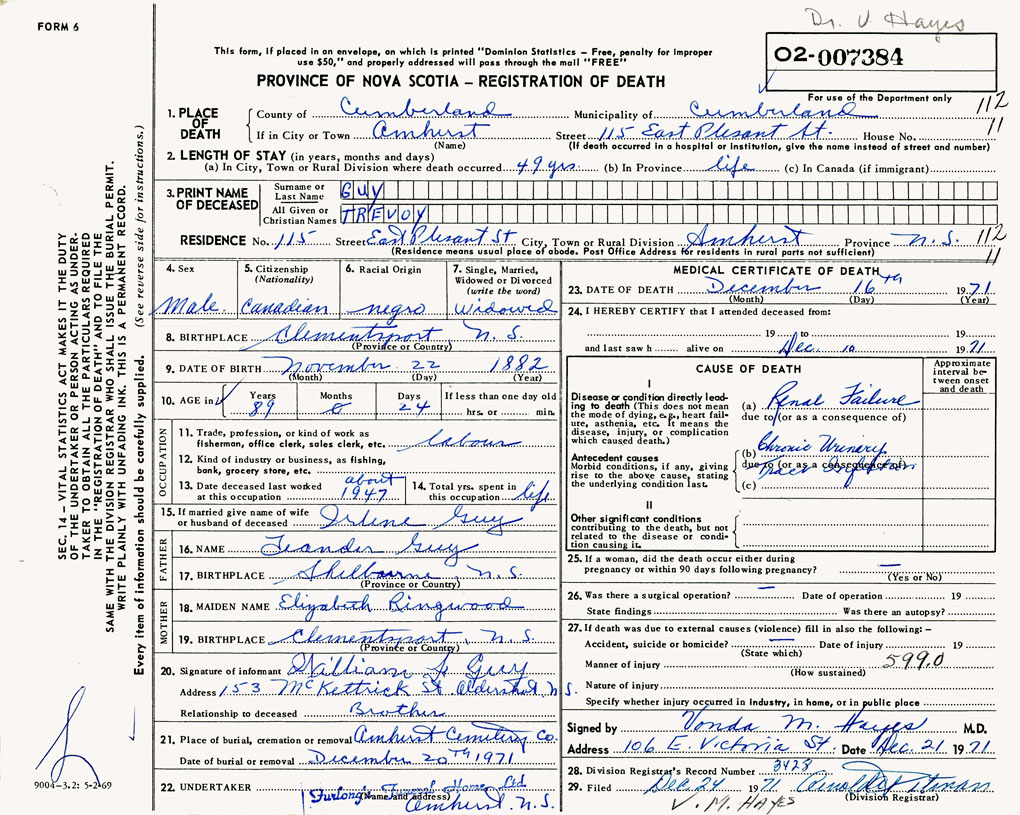 Dr. V. Hayes
FORM 6
02-007384
This form, if placed in an envelope, on which is printed "Dominion Statistics – Free, penalty for improper
use $50," and properly addressed will pass through the mail "FREE"
PROVINCE OF NOVA SCOTIA – REGISTRATION OF DEATH
For use of the Department only
1. PLACE OF DEATH County of Cumberland Municipality of Cumberland 112
If in City or Town Amhurst Street 115 East Plesant St. House No. 11
(Name) (If death occurred in a hospital or institution, give the name instead of street and number)
2. LENGTH OF STAY (in years, months and days)
(a) In City, Town or Rural Division where death occurred 49 yrs. (b) In Province life (c) In Canada (if immigrant)
3. PRINT NAME OF DECEASED Surname or Last Name GUY
All Given or Christian Names TREVOY
RESIDENCE No. 115 Street East Plesant St City, Town or Rural Division Amhurst Province N.S. 112
(Residence means usual place of abode. Post Office Address for residents in rural parts not sufficient) 11
4. Sex 5. Citizenship (Nationality) 6. Racial Origin 7. Single, Married, Widowed or Divorced (write the word)
Male Canadian negro Widowed
8. BIRTHPLACE Clementsport N.S.
(Province or Country)
9. DATE OF BIRTH November 22 1882
(Month) (Day) (Year)
10. AGE in Years Months Days If less than one day old
89 0 24 hrs. or min.
OCCUPATION
11. Trade, profession, or kind of work as
fisherman, office clerk, sales clerk, etc. labour
12. Kind of industry or business, as fishing,
bank, grocery store, etc.
13. Date deceased last worked at this occupation about 1947
14. Total yrs. spent in this occupation life
15. If married give name of wife
or husband of deceased Irlene Guy
FATHER
16. NAME Leander Guy
17. BIRTHPLACE Shelbourne, N.S.
(Province or Country)
MOTHER
18. MAIDEN NAME Elizabeth Ringwood
19. BIRTHPLACE Clementsport, N.S.
(Province or Country)
20. Signature of informant William Guy
Address 153 McKettrick St Aldershot N.S.
Relationship to deceased Brother
21. Place of burial, cremation or removal Amhurst Cemetery Co.
Date of burial or removal December 20th 1971
22. UNDERTAKER Furlong's Funeral Home Ltd
(Name and address) Amhurst, N.S.
MEDICAL CERTIFICATE OF DEATH
23. DATE OF DEATH December 16th 1971
(Month) (Day) (Year)
24. I HEREBY CERTIFY that I attended deceased from:
19 to 19
and last saw h alive on Dec. 10 1971
CAUSE OF DEATH
Approximate interval between onset and death
I
Disease or condition directly leading to death (This does not mean the mode of dying, e.g., heart failure, asthenia, etc. It means the disease, injury, or complication which caused death.)
(a) Renal Failure
due to (or as a consequence of)
Antecedent causes
Morbid conditions, if any, giving rise to the above cause, stating the underlying condition last.
(b) Chronic Urinary
due to (or as a consequence of)
Tract
(c)
II
Other significant conditions
contributing to the death, but not related to the disease or condition causing it.
25. If a woman, did the death occur either during
pregnancy or within 90 days following pregnancy? —
(Yes or No)
26. Was there a surgical operation? — Date of operation 19
State findings Was there an autopsy?
27. If death was due to external causes (violence) fill in also the following: –
Accident, suicide or homicide? — Date of injury 19
(State which)
Manner of injury 599.0
(How sustained)
Nature of injury
Specify whether injury occurred in industry, in home, or in public place
Signed by Vonda M. Hayes M.D.
Address 106 E. Victoria St. Date Dec. 21 1971
28. Division Registrar's Record Number 3428
29. Filed Dec 24 1971
(Division Registrar)
V. M. HAYES
SEC. 14 – VITAL STATISTICS ACT MAKES IT THE DUTY
OF THE UNDERTAKER OR PERSON ACTING AS UNDER-
TAKER TO OBTAIN ALL THE PARTICULARS REQUIRED
IN THE "REGISTRATION OF DEATH" AND TO FILE THE
SAME WITH THE DIVISION REGISTRAR WHO SHALL ISSUE THE BURIAL PERMIT.
WRITE PLAINLY WITH UNFADING INK. THIS IS A PERMANENT RECORD.
Every item of information should be carefully supplied. (See reverse side for instructions.)
9004-3.2: 5-2-69